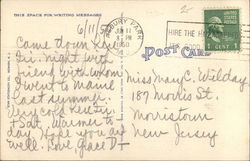 THIS SPACE FOR WRITING MESSAGES
6/11
Came down here
Fri. night with
friend with whom
I went to Maine
last summer.
Very cold Fri. eve
& Sat. Warmer to
day. Hope you are
well. Love Grace D
ASBURY PARK
JUN 11
1950
HIRE THE
1 CENT 1
POST CARD
Miss Mary C. Wilday
187 Morris St.
Morristown
New Jersey